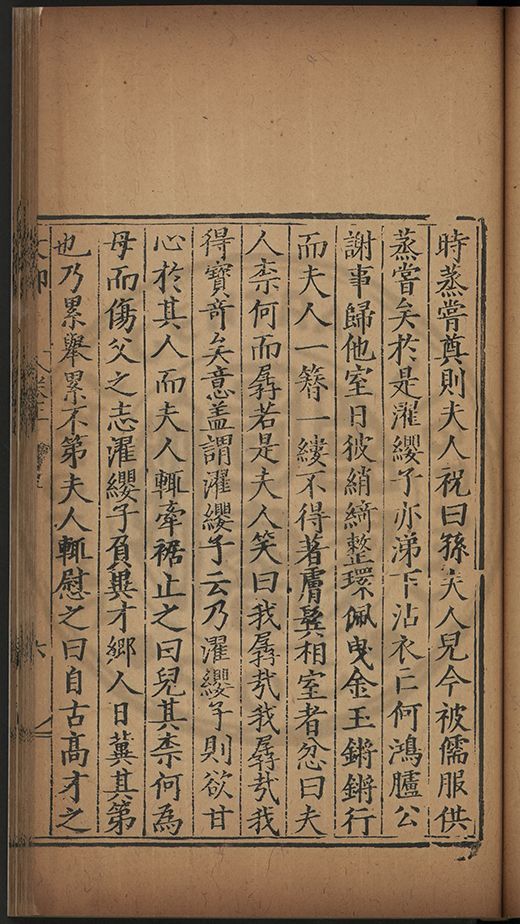 時蒸甞奠則夫人祝曰孫夫人兒今被儒服供
蒸甞矣於是濯纓子亦涕下沾衣亡何鴻臚公
謝事歸他室日彼綃縞整環佩曳金玉鏘鏘行
而夫人一簪一縷不得著膚鬒相室者忿曰夫
人柰何而孱若是夫人笑曰我孱㢤我孱㢤我
得寶奇矣意盖謂濯纓子云乃濯纓子則欲甘
心於其人而夫人輙牽裾止之曰兒其柰何為
母而傷父之志濯纓子負異才鄉人日冀其第
也乃累舉累不第夫人輙慰之曰自古高才之
六